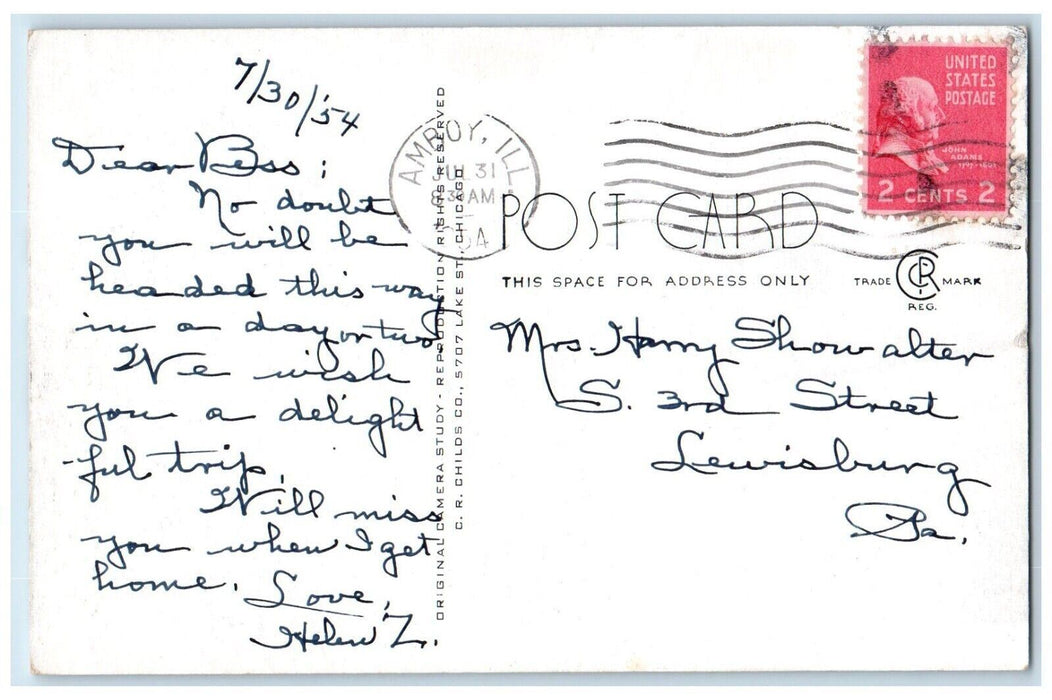 7/30/'54
Dear Bess:
No doubt
you will be
headed this way
in a day or two
We wish
you a delight
-ful trip.
Will miss
you when I get
home.
Love,
Helen Z.
ORIGINAL CAMERA STUDY - REPRODUCTION RIGHTS RESERVED
C. R. CHILDS CO., 5707 LAKE ST., CHICAGO
AMBOY, ILL
JUL 31
8 30 AM
54
UNITED
STATES
POSTAGE
JOHN
ADAMS
1797-1801
2 CENTS 2
POST CARD
THIS SPACE FOR ADDRESS ONLY
TRADE CRC MARK
REG.
Mrs. Harry Showalter
S. 3rd Street
Lewisburg
Pa.